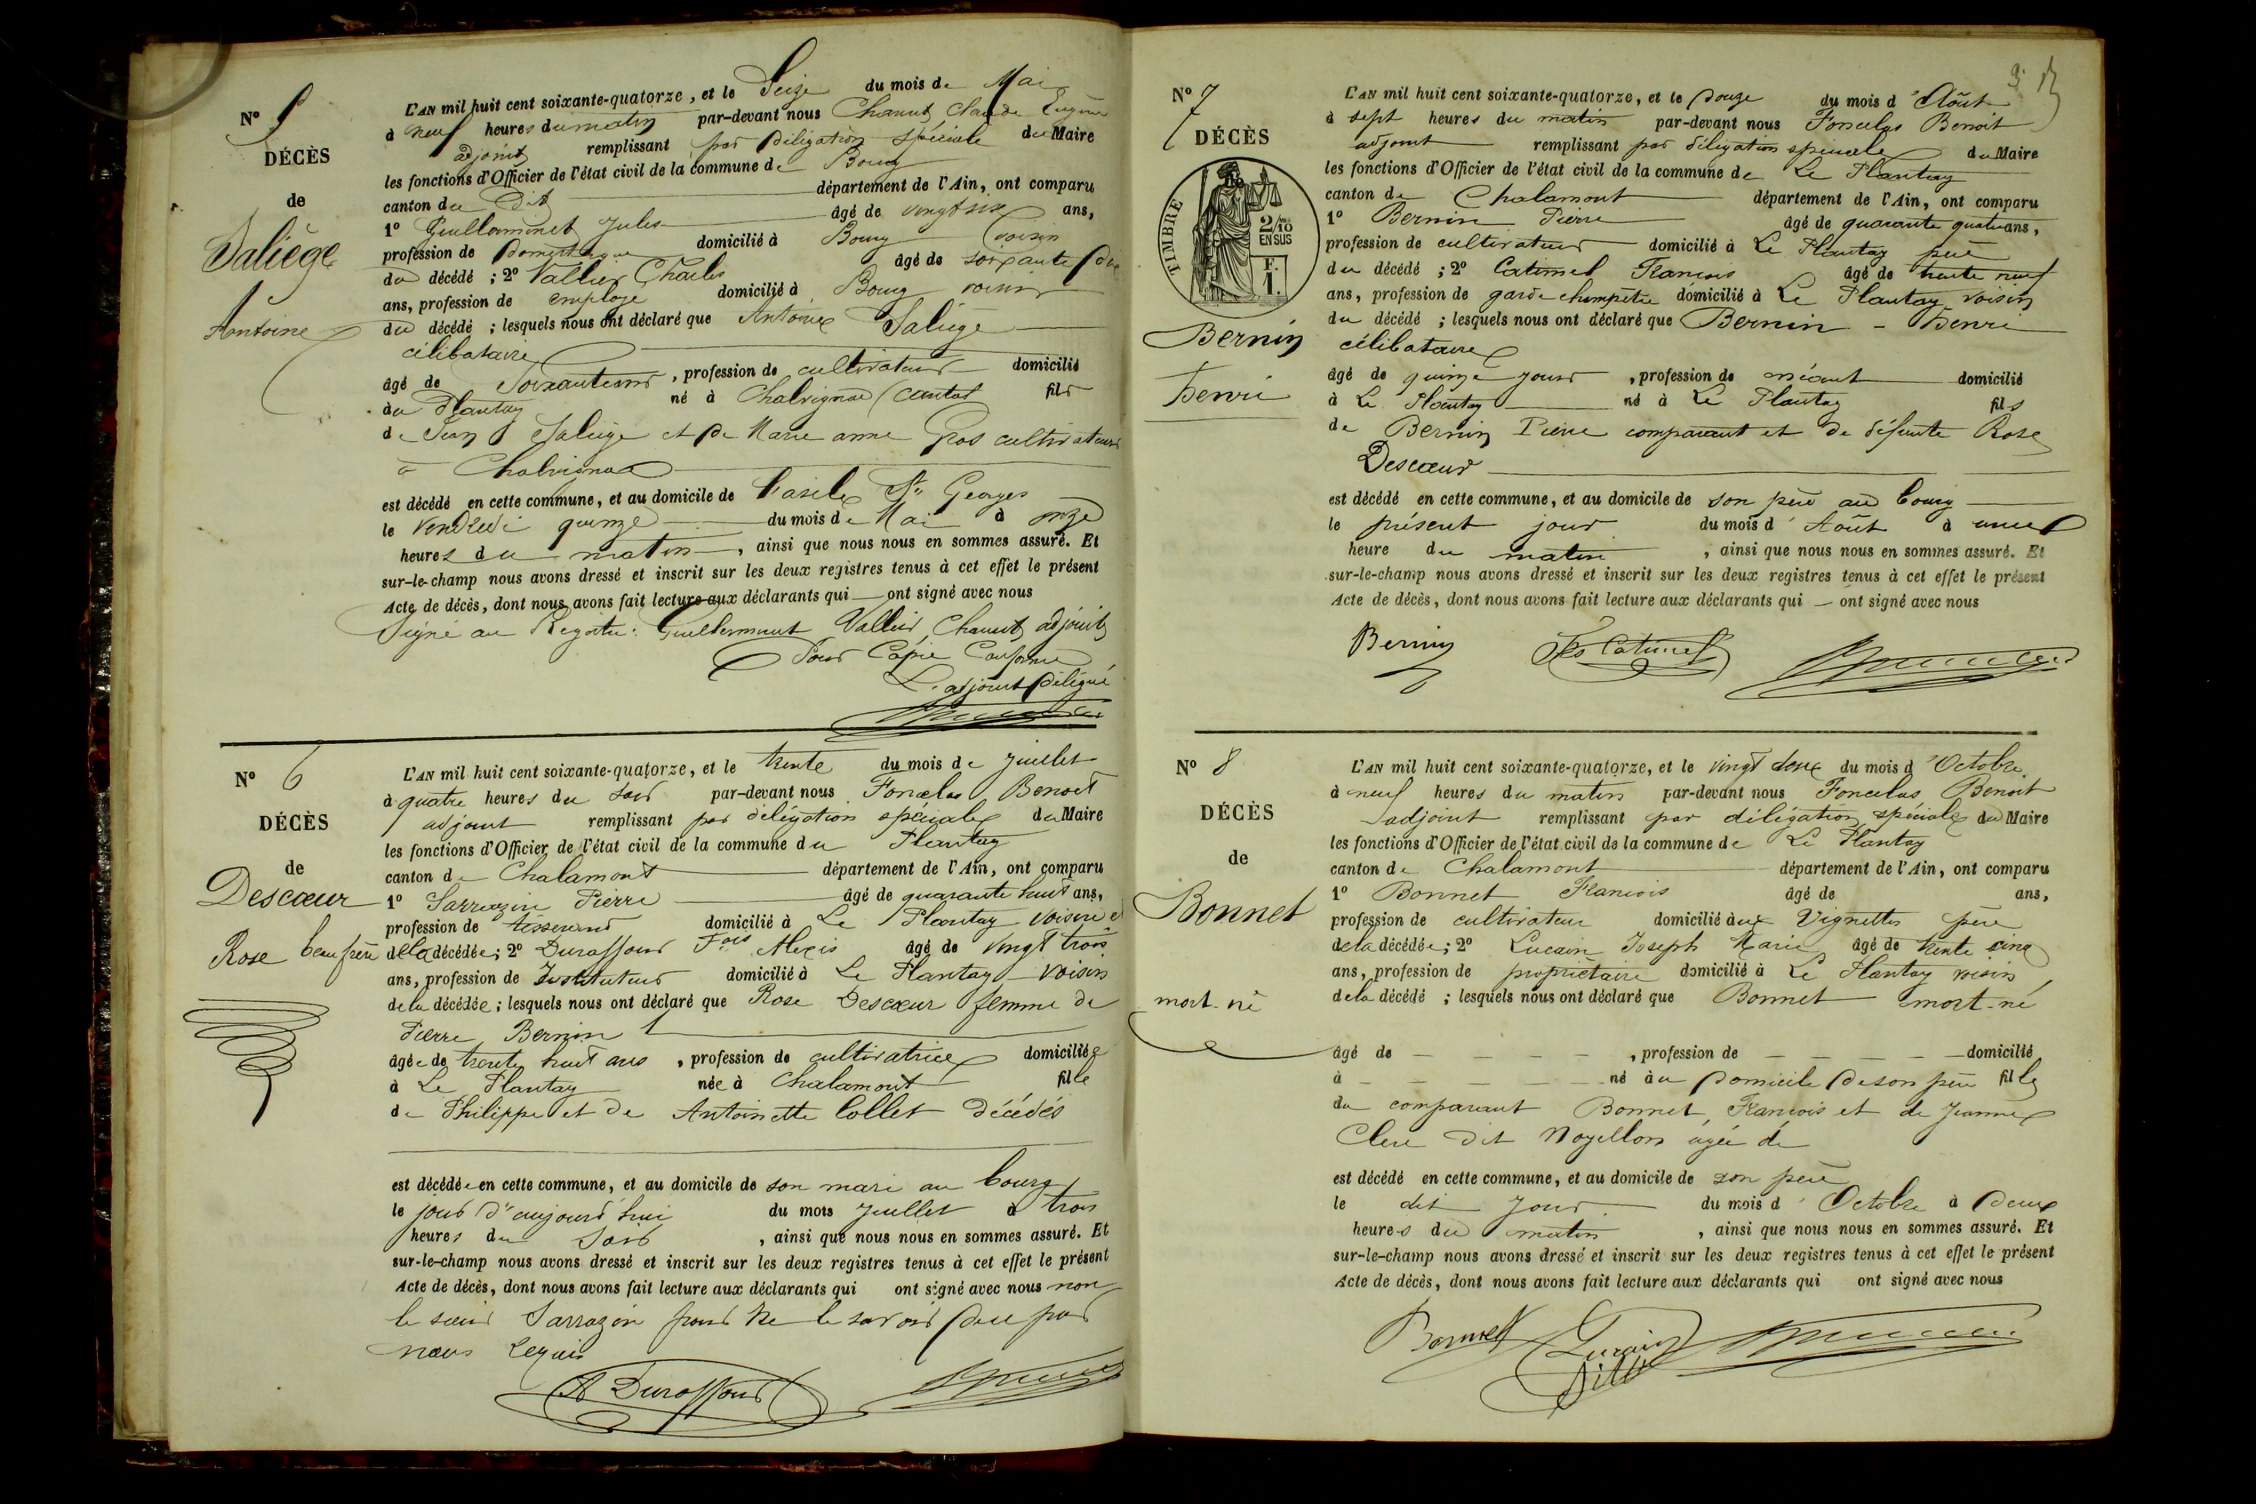 N° 5
DÉCÈS
de
Saliège
Antoine
L'AN mil huit cent soixante-quatorze, et le Seize du mois de Mai
à neuf heures du matin par-devant nous Chanut Claude Eugène
adjoint remplissant par délégation spéciale du Maire
les fonctions d'Officier de l'état civil de la commune de Bourg
canton du Dit département de l'Ain, ont comparu
1° Guillerminet Jules âgé de vingt six ans,
profession de Domestique domicilié à Bourg voisin
du décédé ; 2° Vallier Charles âgé de soixante
ans, profession de employé domicilié à Bourg voisin
du décédé ; lesquels nous ont déclaré que Antoine Saliège
célibataire
âgé de Soixante ans, profession de cultivateur domicilié
au Plantay né à Chalvignac (Cantal fils
de Jean Saliège et de Marie anne Gros cultivateurs
à Chalvignac
est décédé en cette commune, et au domicile de l'asile St Georges
le vendredi quinze du mois de Mai à onze
heures du matin, ainsi que nous nous en sommes assuré. Et
sur-le-champ nous avons dressé et inscrit sur les deux registres tenus à cet effet le présent
Acte de décès, dont nous avons fait lecture aux déclarants qui ont signé avec nous
Signé au Registre : Vallier, Chanut adjoint
Pour Copie Conforme
L'adjoint Délégué
N° 6
DÉCÈS
de
Descœur
Rose
L'AN mil huit cent soixante-quatorze, et le trente du mois de Juillet
à quatre heures du soir par-devant nous Foncelas Benoit
adjoint remplissant par délégation spéciale du Maire
les fonctions d'Officier de l'état civil de la commune du Plantay
canton de Chalamont département de l'Ain, ont comparu
1° Sarrazin Pierre âgé de quarante huit ans,
profession de tisserand domicilié à Le Plantay voisin et
beau frère de la décédée ; 2° Duraffour Fois Alexis âgé de vingt trois
ans, profession de Instituteur domicilié à Le Plantay voisin
de la décédée ; lesquels nous ont déclaré que Rose Descœur femme de
Pierre Bernin
âgée de trente huit ans, profession de cultivatrice domiciliée
à Le Plantay née à Chalamont fille
de Philippe et de Antoinette Collet Décédés
est décédée en cette commune, et au domicile de son mari au bourg
le jour d'aujourd'hui du mois Juillet à trois
heures du soir, ainsi que nous nous en sommes assuré. Et
sur-le-champ nous avons dressé et inscrit sur les deux registres tenus à cet effet le présent
Acte de décès, dont nous avons fait lecture aux déclarants qui ont signé avec nous non
le sieur Sarrazin pour ne le savoir de ce par
nous requis
A Duraffour
N° 7
DÉCÈS
TIMBRE
2/10 EN SUS
F. 1.
Bernin
henri
L'AN mil huit cent soixante-quatorze, et le douze du mois d'Août
à sept heures du matin par-devant nous Foncelas Benoit
adjoint remplissant par délégation spéciale du Maire
les fonctions d'Officier de l'état civil de la commune de Le Plantay
canton de Chalamont département de l'Ain, ont comparu
1° Bernin Pierre âgé de quarante quatre ans,
profession de cultivateur domicilié à Le Plantay père
du décédé ; 2° Catimel Francois âgé de trente neuf
ans, profession de garde champêtre domicilié à Le Plantay voisin
du décédé ; lesquels nous ont déclaré que Bernin - henri
célibataire
âgé de quinze jours, profession de néant domicilié
à Le Plantay né à Le Plantay fils
de Bernin Pierre comparant et de défunte Rose
Descœur
est décédé en cette commune, et au domicile de son père au bourg
le présent jour du mois d'Août à une
heure du matin, ainsi que nous nous en sommes assuré. Et
sur-le-champ nous avons dressé et inscrit sur les deux registres tenus à cet effet le présent
Acte de décès, dont nous avons fait lecture aux déclarants qui ont signé avec nous
Bernin Fs Catimel
N° 8
DÉCÈS
de
Bonnet
mort-né
L'AN mil huit cent soixante-quatorze, et le vingt deux du mois d'Octobre
à neuf heures du matin par-devant nous Foncelas Benoit
adjoint remplissant par délégation spéciale du Maire
les fonctions d'Officier de l'état civil de la commune de Le Plantay
canton de Chalamont département de l'Ain, ont comparu
1° Bonnet Francois âgé de ans,
profession de cultivateur domicilié aux Vignettes père
de la décédée ; 2° Joseph Marie âgé de trente cinq
ans, profession de propriétaire domicilié à Le Plantay voisin
de la décédé ; lesquels nous ont déclaré que Bonnet mort-né
âgé de - - - -, profession de - - - - domicilié
à - - - - né au Domicile de son père fils
du comparant Bonnet Francois et de Jeanne
Clerc dit Noyellon agée de
est décédé en cette commune, et au domicile de son père
le dit jour du mois d'Octobre à Deux
heures du matin, ainsi que nous nous en sommes assuré. Et
sur-le-champ nous avons dressé et inscrit sur les deux registres tenus à cet effet le présent
Acte de décès, dont nous avons fait lecture aux déclarants qui ont signé avec nous
Bonnet